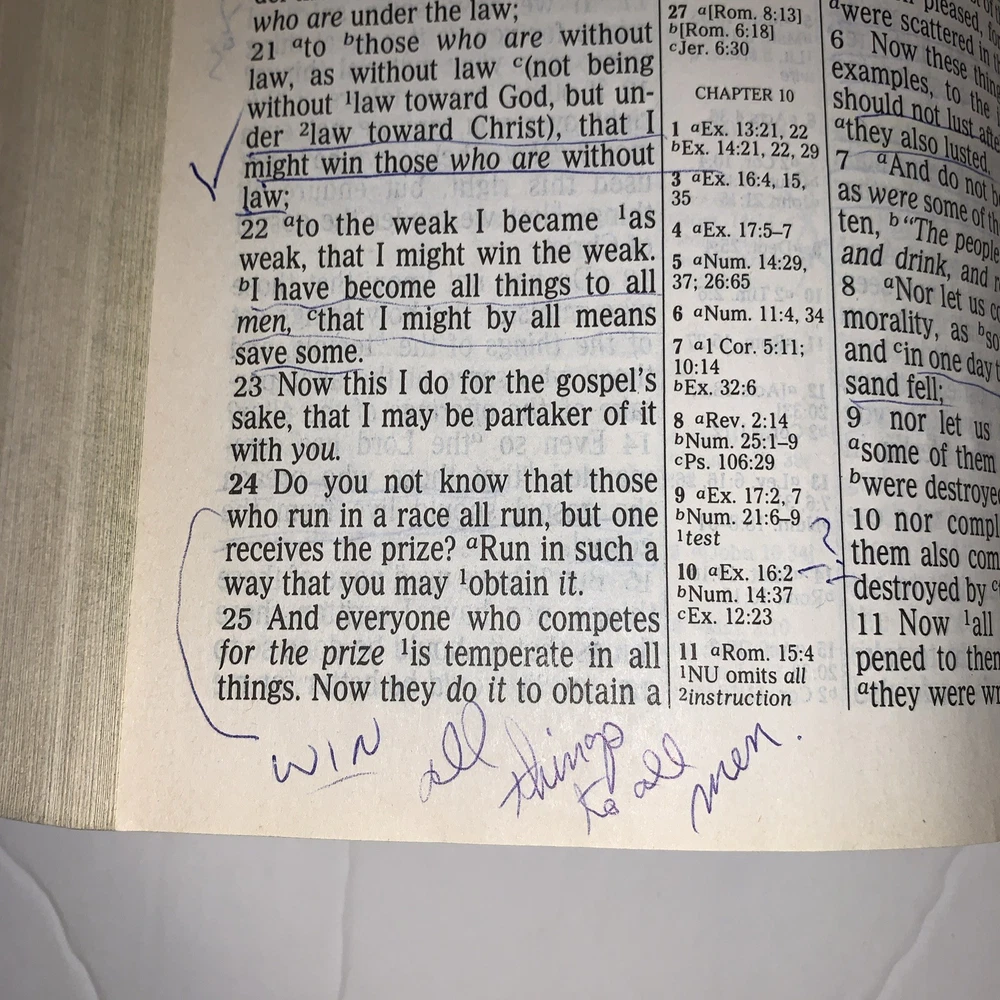 who are under the law;
21 ato bthose who are without
law, as without law c(not being
without 1law toward God, but un-
der 2law toward Christ), that I
might win those who are without
law;
22 ato the weak I became 1as
weak, that I might win the weak.
bI have become all things to all
men, cthat I might by all means
save some.
23 Now this I do for the gospel's
sake, that I may be partaker of it
with you.
24 Do you not know that those
who run in a race all run, but one
receives the prize? aRun in such a
way that you may 1obtain it.
25 And everyone who competes
for the prize 1is temperate in all
things. Now they do it to obtain a
27 a[Rom. 8:13]
b[Rom. 6:18]
cJer. 6:30
CHAPTER 10
1 aEx. 13:21, 22
bEx. 14:21, 22, 29
3 aEx. 16:4, 15,
35
4 aEx. 17:5–7
5 aNum. 14:29,
37; 26:65
6 aNum. 11:4, 34
7 a1 Cor. 5:11;
10:14
bEx. 32:6
8 aRev. 2:14
bNum. 25:1–9
cPs. 106:29
9 aEx. 17:2, 7
bNum. 21:6–9
1test
10 aEx. 16:2
bNum. 14:37
cEx. 12:23
11 aRom. 15:4
1NU omits all
2instruction
pleased,
awere scattered in
6 Now these
examples, to the
should not lust
athey also lusted.
7 aAnd do not
as were some of
ten, b"The people
and drink, and
8 aNor let us
morality, as
and cin one day
sand fell;
9 nor let us
asome of them
bwere
10 nor
them also
destroyed by
11 Now 1all
to
athey were
WIN all things to all men.